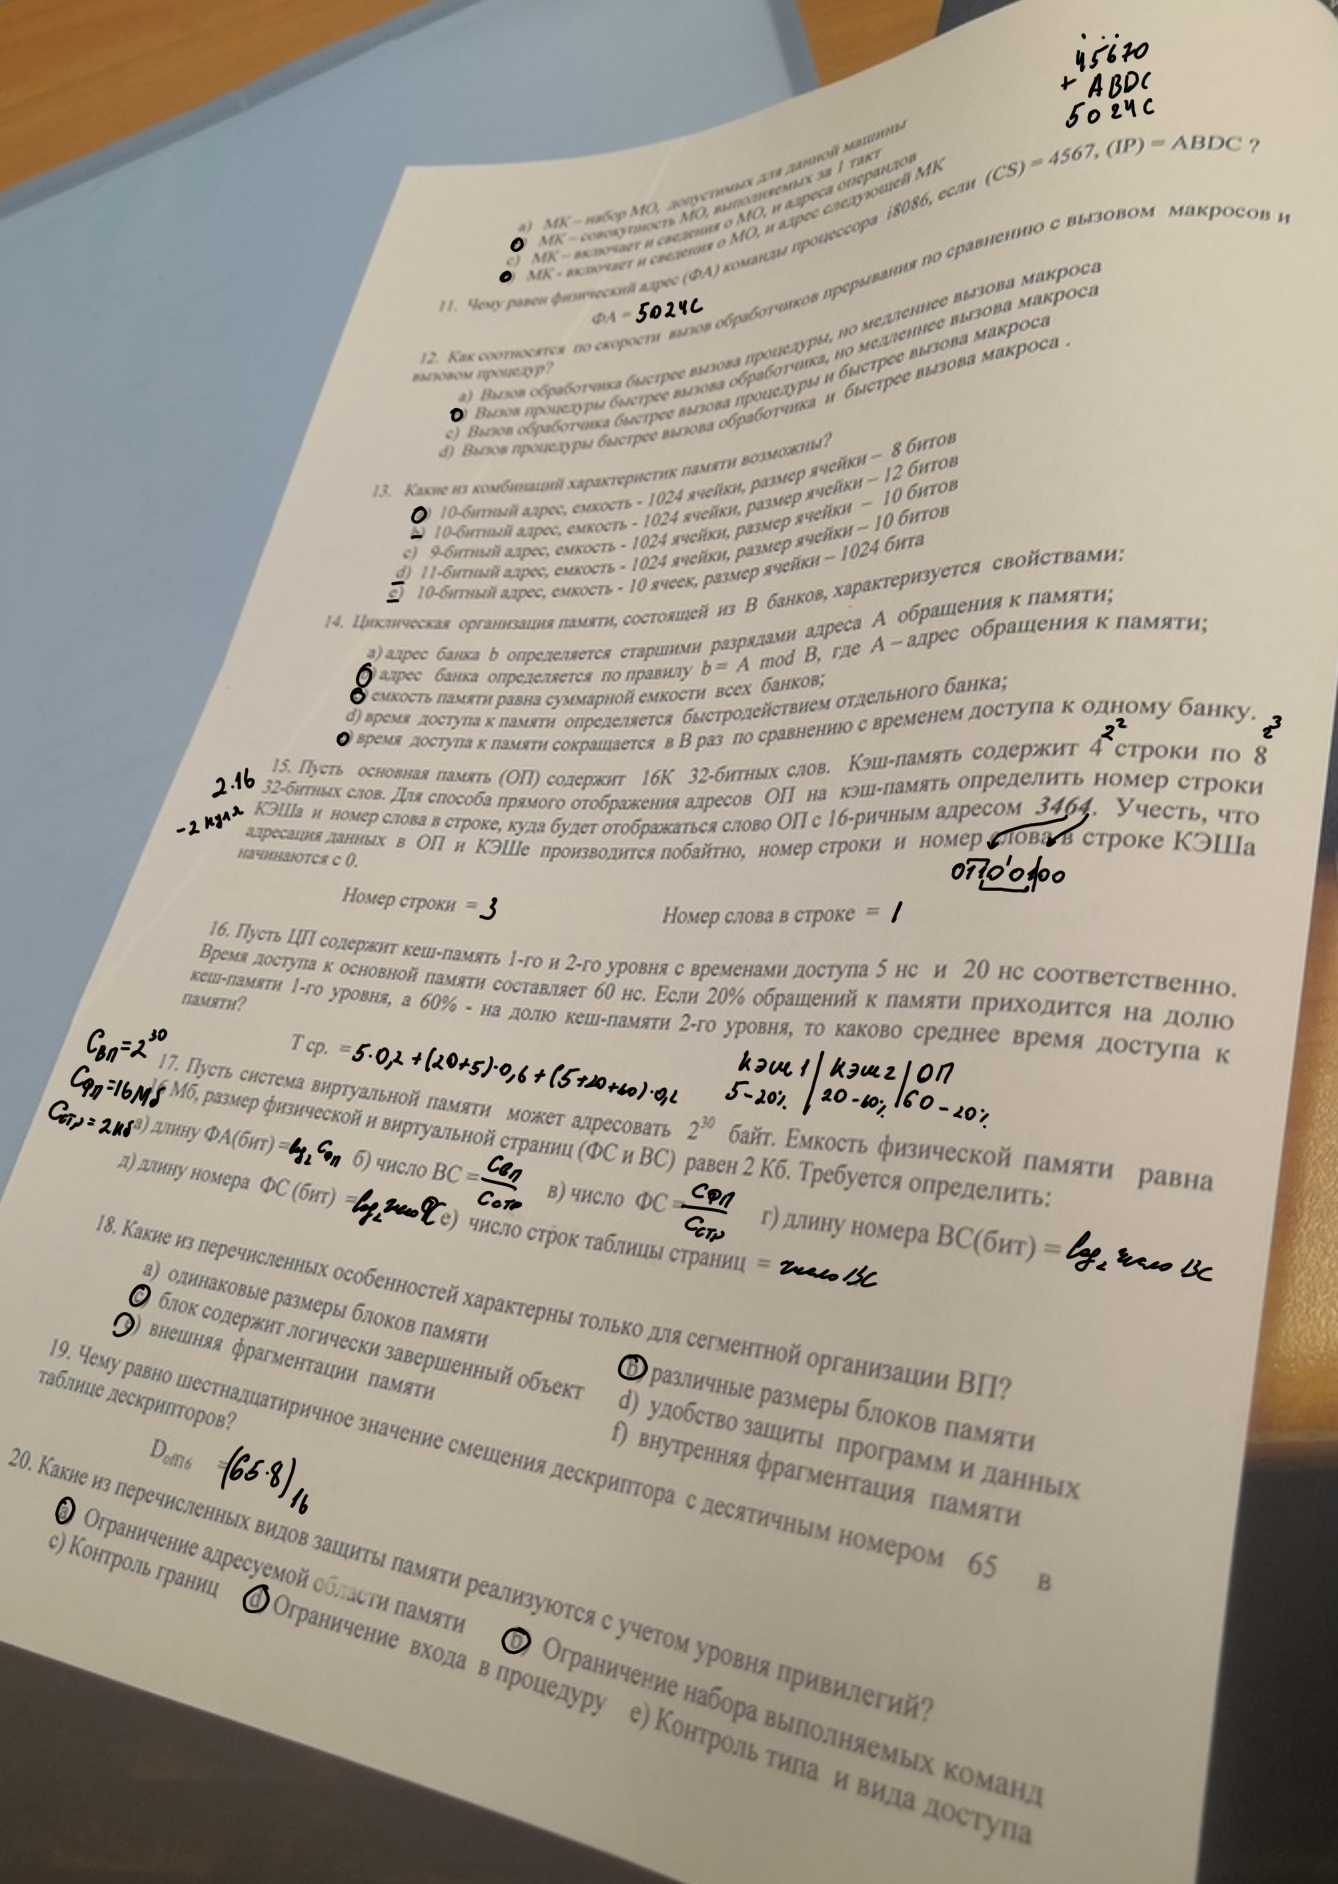 45670
+ ABDC
5024C
a) МК – набор МО, допустимых для данной машины
МК – совокупность МО, выполняемых за 1 такт
c) МК – включает и сведения о МО, и адреса операндов
МК - включает и сведения о МО, и адрес следующей МК
11. Чему равен физический адрес (ФА) команды процессора i8086, если (CS) = 4567, (IP) = ABDC ?
ФА = 5024C
12. Как соотносятся по скорости вызов обработчиков прерывания по сравнению с вызовом макросов и
вызовом процедур?
a) Вызов обработчика быстрее вызова процедуры, но медленнее вызова макроса
Вызов процедуры быстрее вызова обработчика, но медленнее вызова макроса
c) Вызов обработчика быстрее вызова процедуры и быстрее вызова макроса
d) Вызов процедуры быстрее вызова обработчика и быстрее вызова макроса .
13. Какие из комбинаций характеристик памяти возможны?
10-битный адрес, емкость - 1024 ячейки, размер ячейки – 8 битов
b) 10-битный адрес, емкость - 1024 ячейки, размер ячейки – 12 битов
c) 9-битный адрес, емкость - 1024 ячейки, размер ячейки – 10 битов
d) 11-битный адрес, емкость - 1024 ячейки, размер ячейки – 10 битов
e) 10-битный адрес, емкость - 10 ячеек, размер ячейки – 1024 бита
14. Циклическая организация памяти, состоящей из B банков, характеризуется свойствами:
a) адрес банка b определяется старшими разрядами адреса A обращения к памяти;
адрес банка определяется по правилу b = A mod B, где A – адрес обращения к памяти;
емкость памяти равна суммарной емкости всех банков;
d) время доступа к памяти определяется быстродействием отдельного банка;
время доступа к памяти сокращается в B раз по сравнению с временем доступа к одному банку.
2² 2³
15. Пусть основная память (ОП) содержит 16К 32-битных слов. Кэш-память содержит 4 строки по 8
2·16
32-битных слов. Для способа прямого отображения адресов ОП на кэш-память определить номер строки
-2 нуля
КЭШа и номер слова в строке, куда будет отображаться слово ОП с 16-ричным адресом 3464. Учесть, что
адресация данных в ОП и КЭШе производится побайтно, номер строки и номер слова в строке КЭШа
начинаются с 0.
01100100
Номер строки = 3 Номер слова в строке = 1
16. Пусть ЦП содержит кеш-память 1-го и 2-го уровня с временами доступа 5 нс и 20 нс соответственно.
Время доступа к основной памяти составляет 60 нс. Если 20% обращений к памяти приходится на долю
кеш-памяти 1-го уровня, а 60% - на долю кеш-памяти 2-го уровня, то каково среднее время доступа к
памяти?
Т ср. = 5·0,2 + (20+5)·0,6 + (5+20+60)·0,2
кэш 1 | кэш 2 | ОП
5 – 20% | 20 – 60% | 60 – 20%
Cвп = 2³⁰
Cфп = 16Мб
Cстр = 2Кб
17. Пусть система виртуальной памяти может адресовать 2³⁰ байт. Емкость физической памяти равна
16 Мб, размер физической и виртуальной страниц (ФС и ВС) равен 2 Кб. Требуется определить:
а) длину ФА(бит) = log₂ Cфп б) число ВС = Cвп / Cстр в) число ФС = Cфп / Cстр г) длину номера ВС(бит) = log₂ число ВС
д) длину номера ФС (бит) = log₂ число ФС е) число строк таблицы страниц = число ВС
18. Какие из перечисленных особенностей характерны только для сегментной организации ВП?
a) одинаковые размеры блоков памяти b) различные размеры блоков памяти
c) блок содержит логически завершенный объект d) удобство защиты программ и данных
внешняя фрагментации памяти f) внутренняя фрагментация памяти
19. Чему равно шестнадцатиричное значение смещения дескриптора с десятичным номером 65 в
таблице дескрипторов?
Dотп6 = (65·8)₁₆
20. Какие из перечисленных видов защиты памяти реализуются с учетом уровня привилегий?
a) Ограничение адресуемой области памяти b) Ограничение набора выполняемых команд
c) Контроль границ d) Ограничение входа в процедуру e) Контроль типа и вида доступа